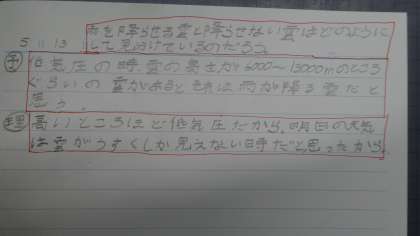 雨を降らせる雲と降らせない雲はどのように
して見分けているのだろう。
5 11 13
予 低気圧の時、雲の高さが6000〜13000mのところ
ぐらいの雲があるとそれは雨が降る雲だと
思う。
理 高いところほど低気圧だから、明日の天気
は雲がうすくしか見えない時だと思ったから。